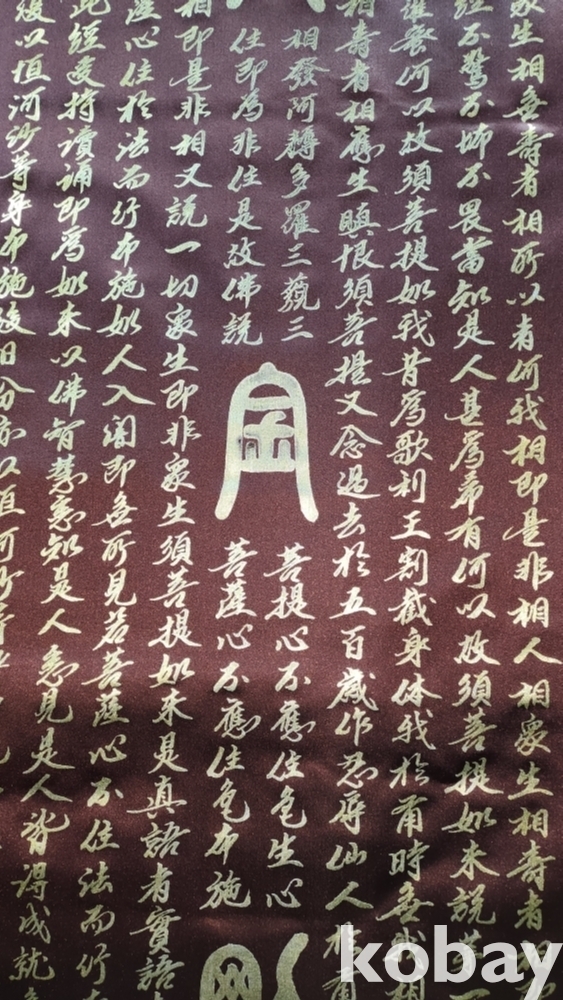 眾生相無壽者相所以者何我相即是非相人相眾生相壽者相即
經不驚不怖不畏當知是人甚為希有何以故須菩提如來說第一
羅蜜何以故須菩提如我昔為歌利王割截身体我於爾時無我相
相壽者相應生嗔恨須菩提又念過去於五百歲作忍辱仙人
相發阿耨多羅三藐三
菩提心不應住色生心
住即為非住是故佛說
菩薩心不應住色布施
相即是非相又說一切眾生即非眾生須菩提如來是真語者實語
薩心住於法而行布施如人入闇即無所見若菩薩心不住法而行布
此經受持讀誦即為如來以佛智慧悉知是人悉見是人皆得成就
復以恒河沙等身布施後日分亦以恒河沙等
kobay